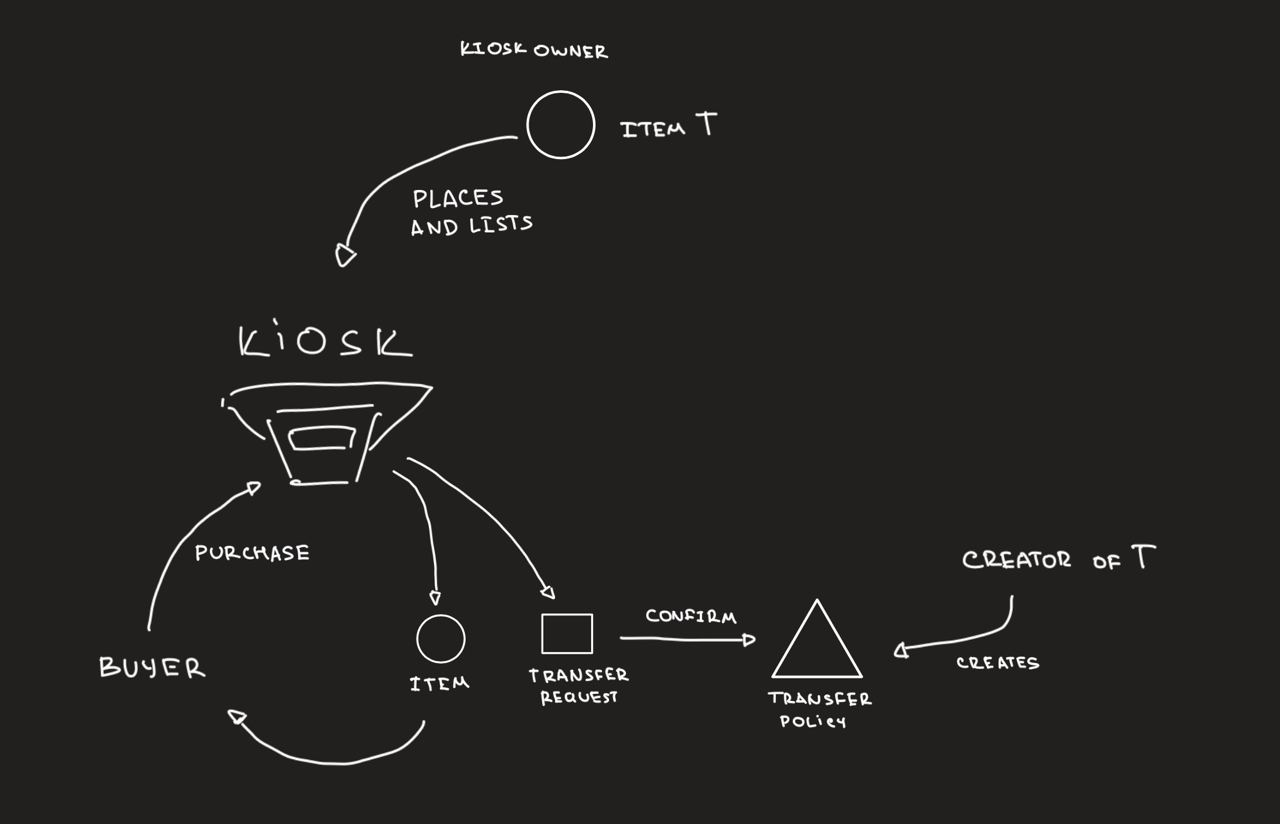 KIOSK OWNER
ITEM T
PLACES
AND LISTS
KiOSK
PURCHASE
BUYER
ITEM
TRANSFER
REQUEST
CONFIRM
TRANSFER
POLicy
CREATOR OF T
CREATES